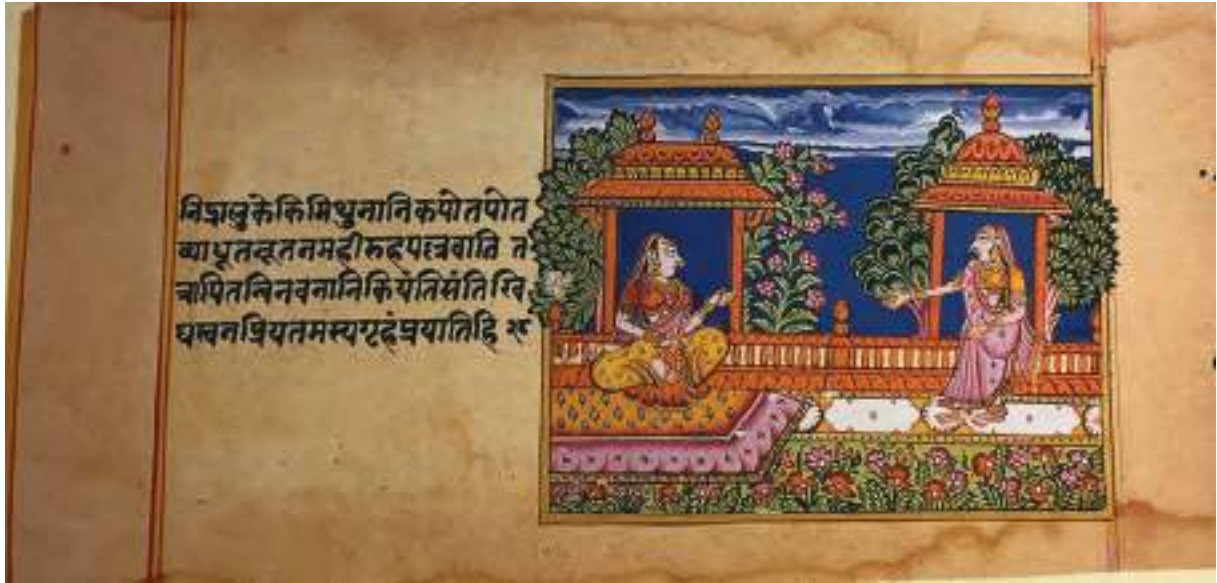 निद्रालुकेकिमिथुनानिकपोतपोत
व्याधूतनूतनमहीरुहपल्लवानि त
त्रापितन्विनवनानिकियंतिसंतिखि
द्यस्वनप्रियतमस्यगृहंप्रयातिहि २८